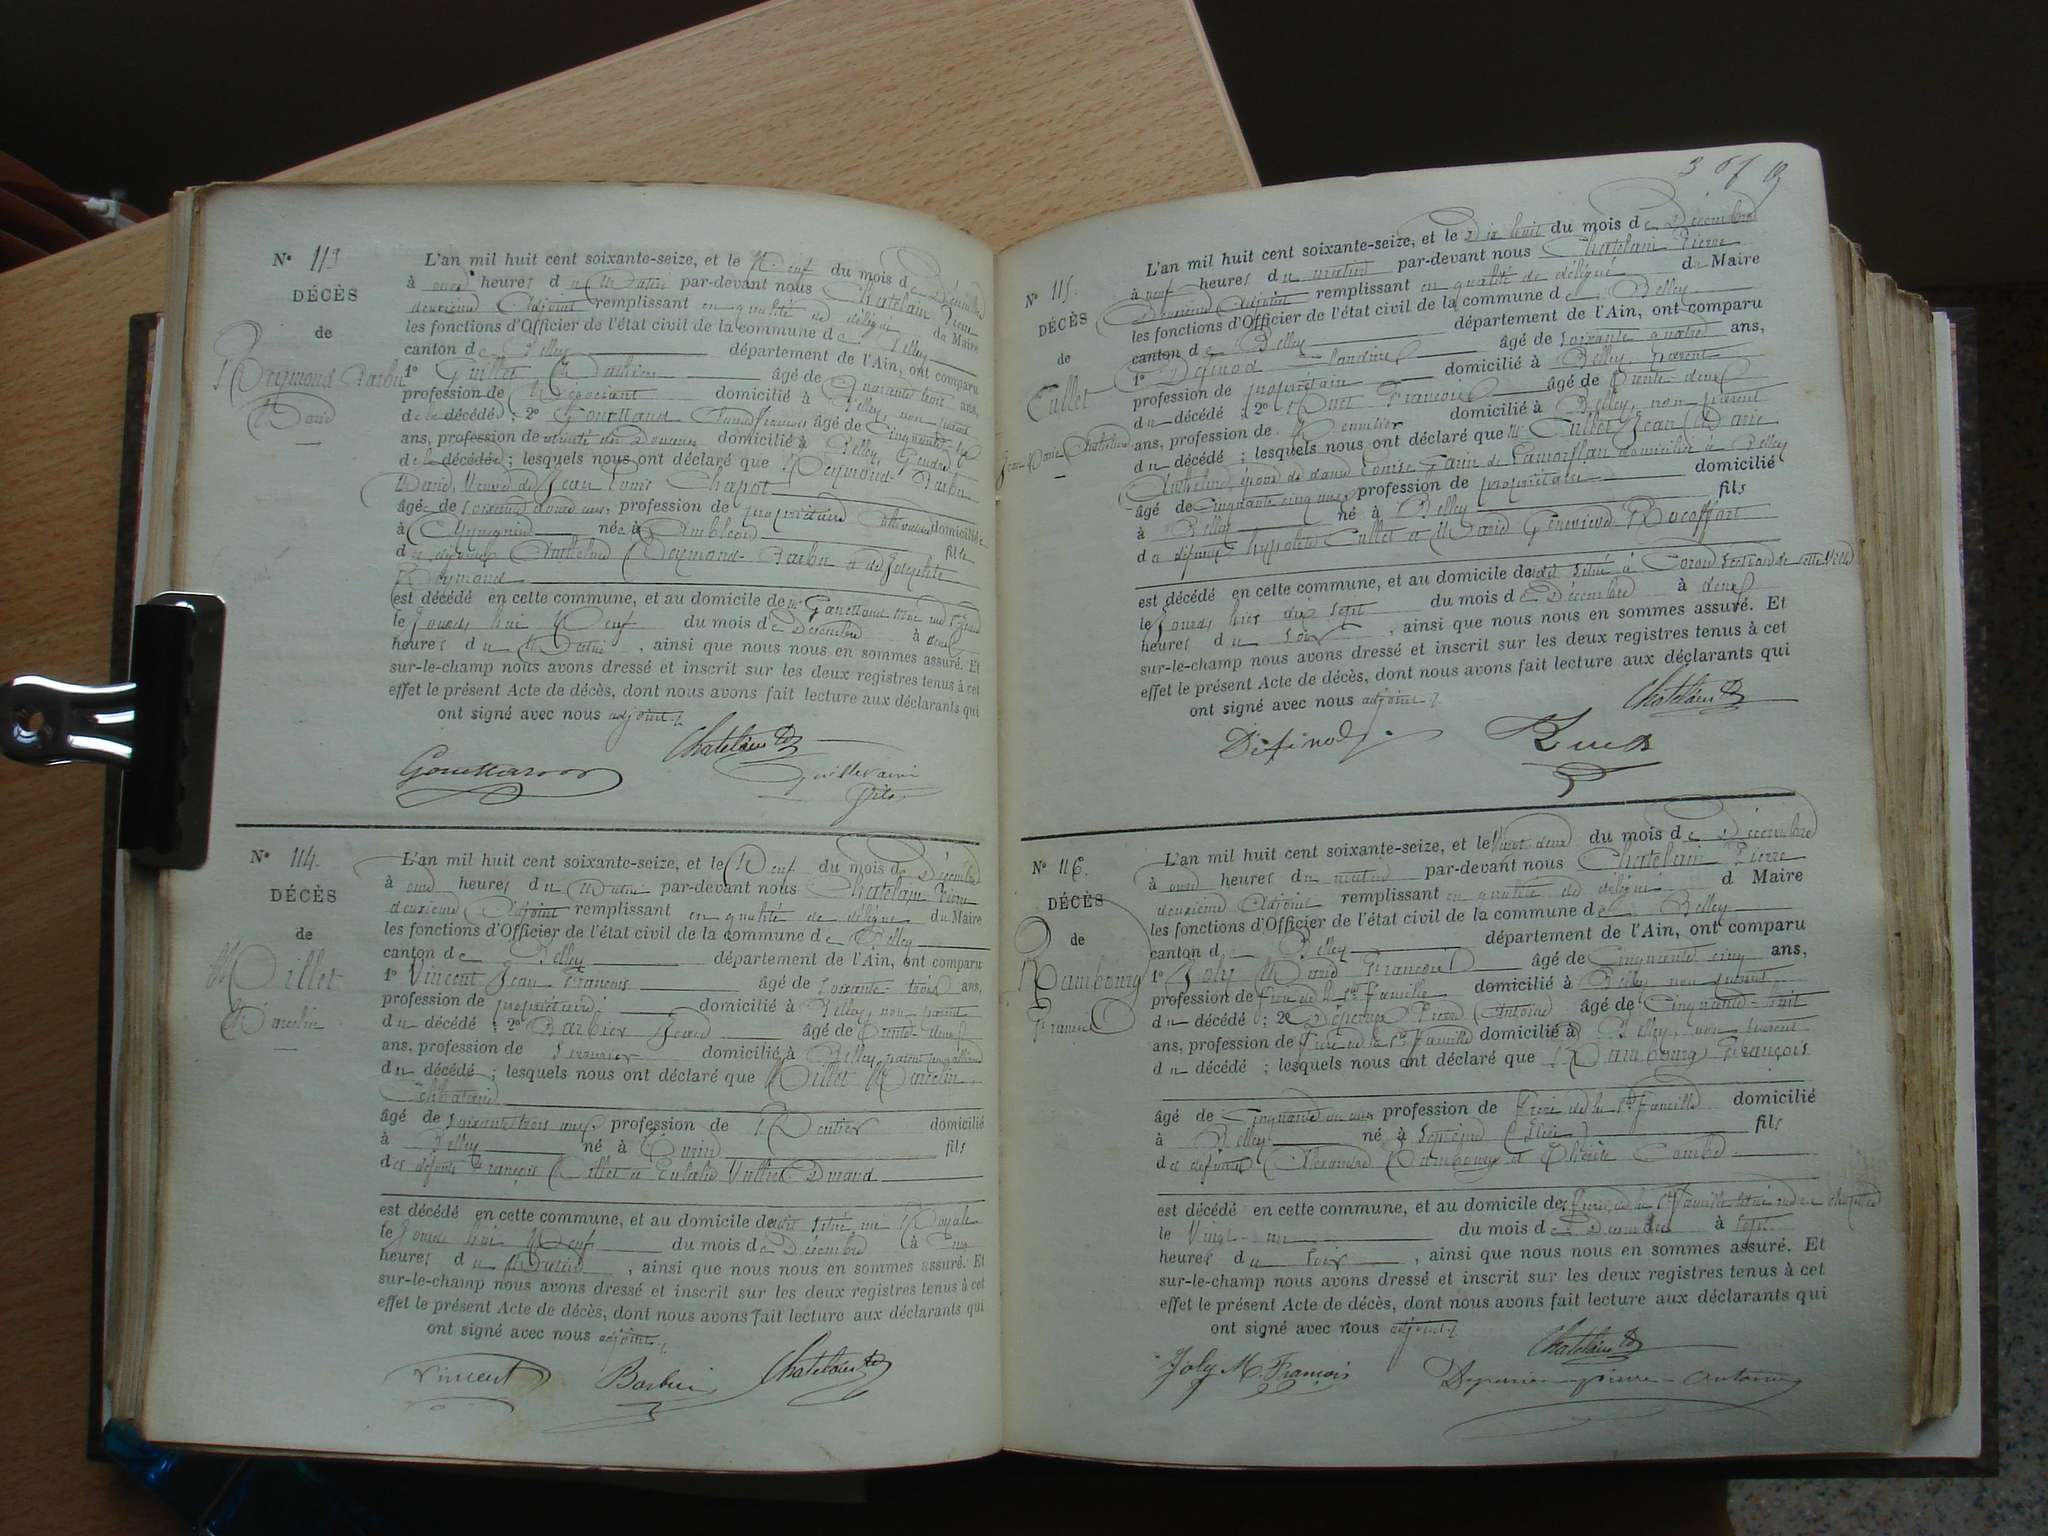 N° 113
DÉCÈS
de
Reymond Barbu
Marie
L'an mil huit cent soixante-seize, et le Neuf du mois de Décembre
à onze heures du Matin par-devant nous Chatelain Pierre
deuxième Adjoint remplissant en qualité de délégué du Maire
les fonctions d'Officier de l'état civil de la commune de Belley
canton de Belley département de l'Ain, ont comparu
1° Guillet âgé de Quarante huit ans,
profession de Négociant domicilié à Belley, non parent
de la décédée ; 2° âgé de Cinquante
ans, profession de domicilié à Belley, Gendre
de la décédée ; lesquels nous ont déclaré que Reymond-Barbu
Marie, Veuve de Jean Louis Chapot
âgée de soixante douze ans, profession de propriétaire domiciliée
à née à Ambléon fille
de Anthelme Reymond-Barbu et de Josephte
Reymond
est décédé en cette commune, et au domicile de
le Jourd'hui Neuf du mois de Décembre à deux
heures du Matin, ainsi que nous nous en sommes assuré. Et
sur-le-champ nous avons dressé et inscrit sur les deux registres tenus à cet
effet le présent Acte de décès, dont nous avons fait lecture aux déclarants qui
ont signé avec nous adjoint
Chatelain
N° 114.
DÉCÈS
de
Millet
Marcelin
L'an mil huit cent soixante-seize, et le Neuf du mois de Décembre
à onze heures du Matin par-devant nous Chatelain Pierre
deuxième Adjoint remplissant en qualité de délégué du Maire
les fonctions d'Officier de l'état civil de la commune de Belley
canton de Belley département de l'Ain, ont comparu
1° Vincent Jean François âgé de soixante-trois ans,
profession de propriétaire domicilié à Belley, non parent
du décédé ; 2° Barbier âgé de trente-deux
ans, profession de Serrurier domicilié à Belley, parent par alliance
du décédé ; lesquels nous ont déclaré que Millet Marcelin,
Célibataire
âgé de soixante trois ans profession de Rentier domicilié
à Belley né à Turin fils
des défunts François Millet et Eulalie
est décédé en cette commune, et au domicile de situé, rue Royale
le Jourd'hui Neuf du mois de Décembre à cinq
heures du Matin, ainsi que nous nous en sommes assuré. Et
sur-le-champ nous avons dressé et inscrit sur les deux registres tenus à cet
effet le présent Acte de décès, dont nous avons fait lecture aux déclarants qui
ont signé avec nous adjoint
Vincent Barbier Chatelain
N° 115.
DÉCÈS
de
Cullet
Jean Marie Anthelme
L'an mil huit cent soixante-seize, et le Dix huit du mois de Décembre
à neuf heures du matin par-devant nous Chatelain Pierre
Deuxième Adjoint remplissant en qualité de délégué du Maire
les fonctions d'Officier de l'état civil de la commune de Belley
canton de Belley département de l'Ain, ont comparu
1° Définod âgé de soixante quatre ans,
profession de propriétaire domicilié à Belley, parent
du décédé ; 2° François âgé de trente-deux
ans, profession de domicilié à Belley, non parent
du décédé ; lesquels nous ont déclaré que Mr Cullet Jean Marie
Anthelme, époux de dame Louise Garin de Lamorflan domicilié à Belley
âgé de Cinquante cinq ans, profession de propriétaire domicilié
à Belley né à Belley fils
de défunts hypolite Cullet et Marie Geneviève Rocoffort
est décédé en cette commune, et au domicile de
le Jourd'hier dix sept du mois de Décembre à deux
heures du soir, ainsi que nous nous en sommes assuré. Et
sur-le-champ nous avons dressé et inscrit sur les deux registres tenus à cet
effet le présent Acte de décès, dont nous avons fait lecture aux déclarants qui
ont signé avec nous adjoint
Chatelain
Difinod
N° 116.
DÉCÈS
de
Rambourg
François
L'an mil huit cent soixante-seize, et le Vingt deux du mois de Décembre
à onze heures du matin par-devant nous Chatelain Pierre
deuxième Adjoint remplissant en qualité de délégué d Maire
les fonctions d'Officier de l'état civil de la commune de Belley
canton de Belley département de l'Ain, ont comparu
1° Joly Marie François âgé de Cinquante cinq ans,
profession de frère de la Ste famille domicilié à Belley, non parent
du décédé ; 2° Pierre Antoine âgé de Cinquante-huit
ans, profession de frère de la Ste famille domicilié à Belley, non parent
du décédé ; lesquels nous ont déclaré que Rambourg François
âgé de Cinquante un ans profession de frère de la Ste famille domicilié
à Belley né à fils
des défunts Alexandre Rambourg et Combe
est décédé en cette commune, et au domicile des frères de la Ste famille
le Vingt-un du mois de Décembre à sept
heures du soir, ainsi que nous nous en sommes assuré. Et
sur-le-champ nous avons dressé et inscrit sur les deux registres tenus à cet
effet le présent Acte de décès, dont nous avons fait lecture aux déclarants qui
ont signé avec nous adjoint
Chatelain
Joly M. François